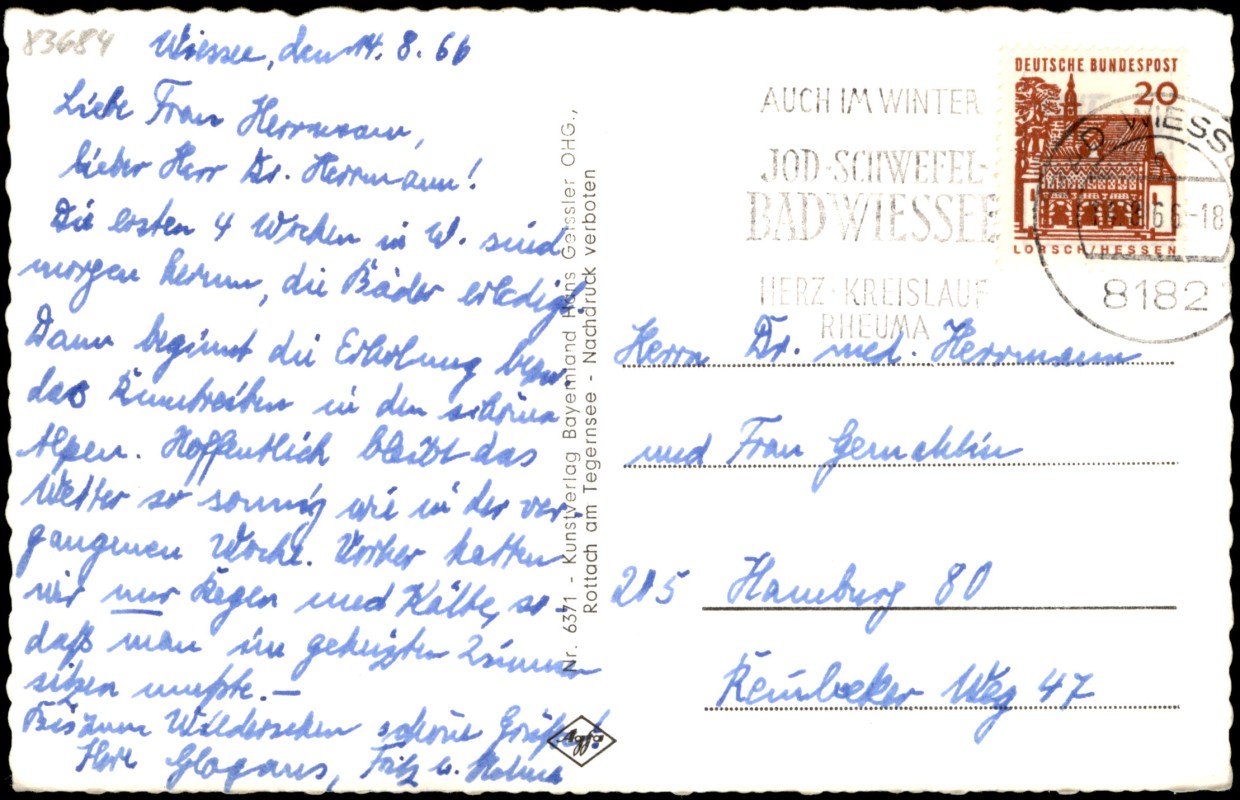 83684
Wiessee, den 14. 8. 66
Liebe Frau Herrmann,
lieber Herr Dr. Herrmann!
Die ersten 4 Wochen in W. sind
morgen herum, die Bäder erledigt.
Dann beginnt die Erholung bezw.
das Rumtreiben in den schönen
Alpen. Hoffentlich bleibt das
Wetter so sonnig wie in der ver-
gangenen Woche. Vorher hatten
wir nur Regen und Kälte, so-
daß man im geheizten Zimmer
sitzen mußte.—
Bis zum Wiedersehen schöne Grüße!
Glogaus, Fritz u.
Nr. 6371 - Kunstverlag Bayernland Hans Geissler OHG.,
Rottach am Tegernsee - Nachdruck verboten
Agfa
AUCH IM WINTER
JOD-SCHWEFEL-
BAD WIESSEE
HERZ·KREISLAUF
RHEUMA
DEUTSCHE BUNDESPOST
20
LORSCH/HESSEN
BAD WIESSEE
8.66-18
8182
Herrn Dr. med. Herrmann
und Frau Gemahlin
205 Hamburg 80
Reinbeker Weg 47